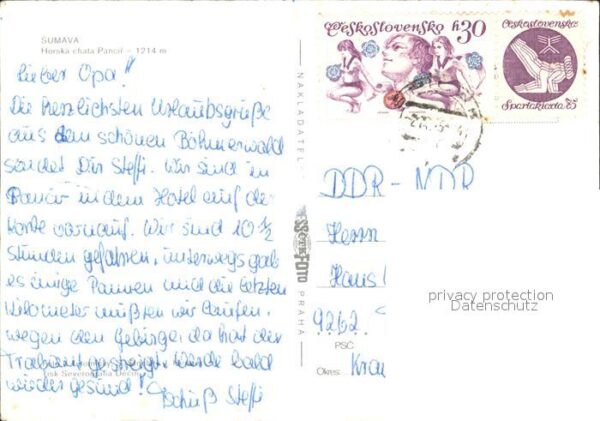 ŠUMAVA
Horská chata Pancíř — 1214 m
Lieber Opa!
Die herzlichsten Urlaubsgrüße
aus dem schönen Böhmerwald
sendet Dir Steffi. Wir sind in
Pancíř in dem Hotel auf der
Karte vorauf. Wir sind 10 1/2
Stunden gefahren, unterwegs gab
es einige Pannen und die letzten
Kilometer mußten wir laufen,
wegen dem Gebirge, da hat der
Trabant gestreigt. Werde bald
wieder gesund!
Tschüß Steffi
Tisk Severografia Děčín
NAKLADATEL
PRESSFOTO
PRAHA
Československo h30
Československo
Spartakiáda 75
DDR - NDR
Herrn
Hans
9262
PSČ
Okres:
privacy protection
Datenschutz